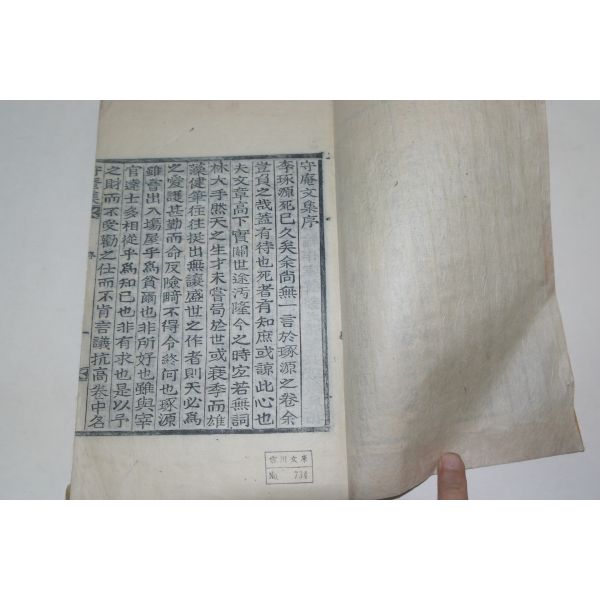 守庵文集序
李琢源死已久矣余尚無一言於琢源之卷余
豈負之哉蓋有待也死者有知庶或諒此心也
夫文章高下實關世途汚隆今之時宜若無詞
林大手然天之生才未嘗局於世或衰季而雄
藻健筆往往挺出無讓盛世之作者則天必爲
之愛護甚勤而命反險畸不得令終何也琢源
雖嘗出入塲屋乎爲貧爾也非所好也雖與宰
官達士多相從乎爲知己也非有求也是以予
之財而不受勸之仕而不肯言議抗高卷中名
守庵集
序
一
文庫
No. 734